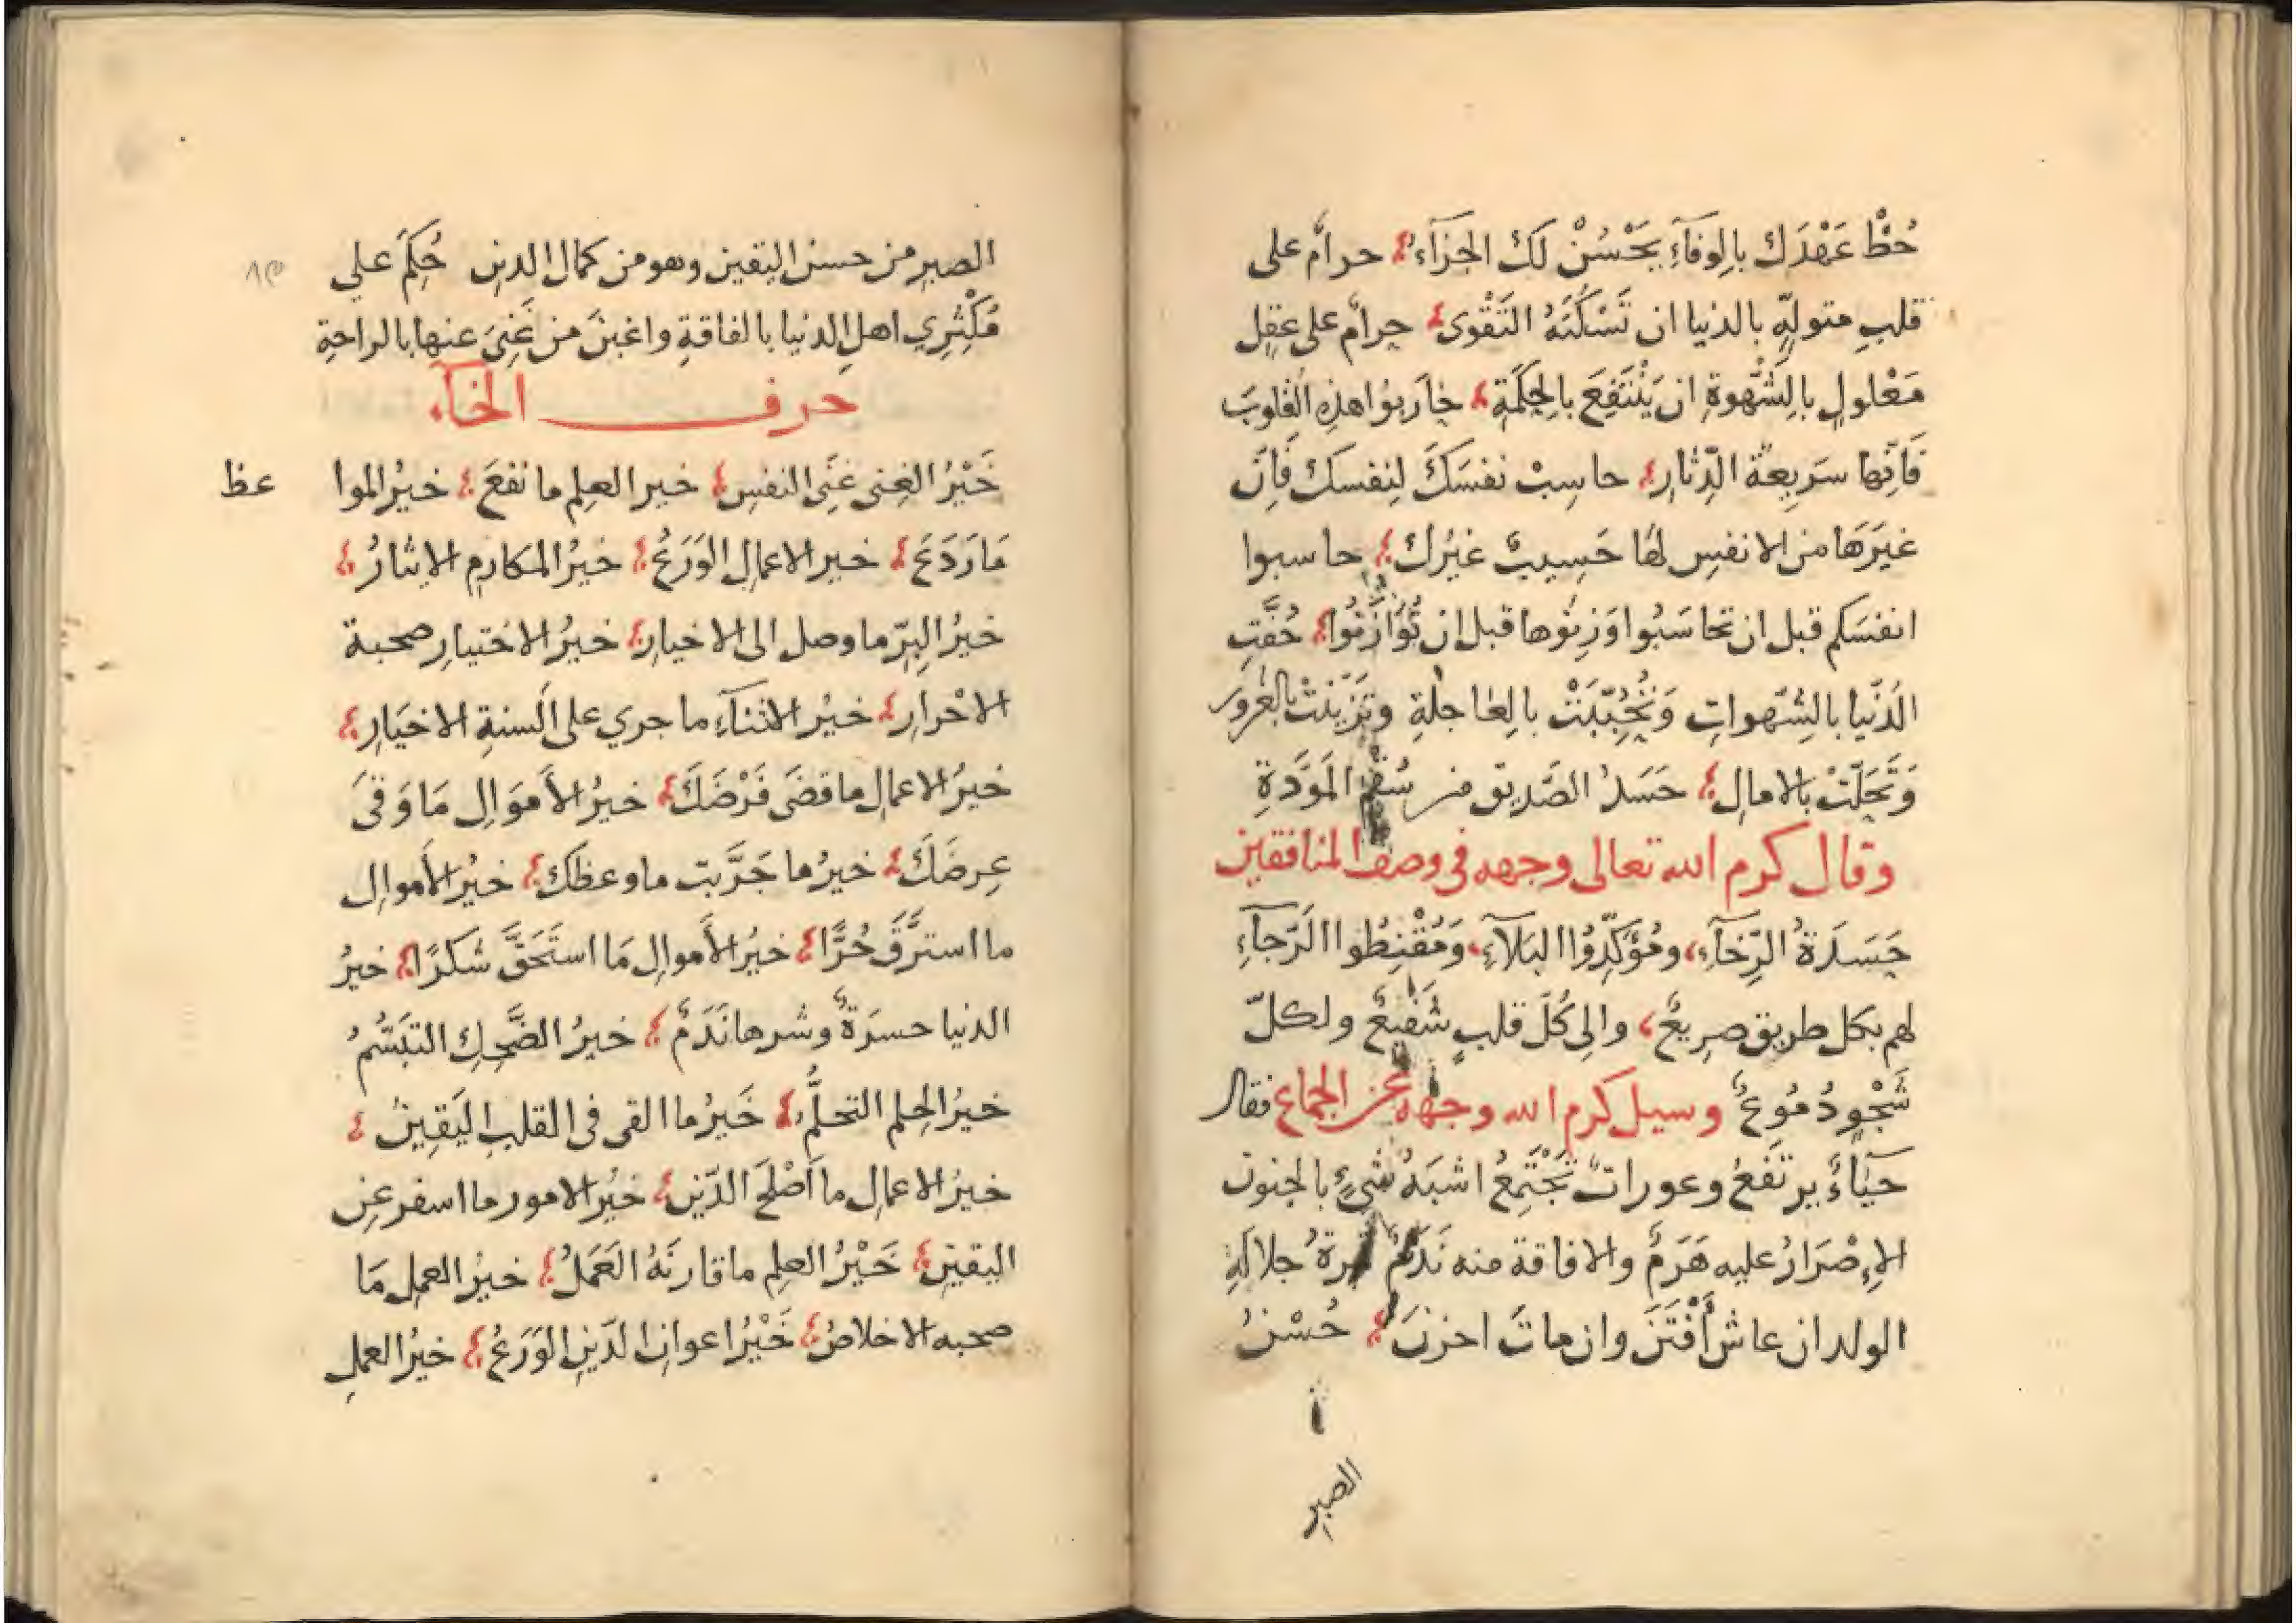 حُطْ عَهْدَكَ بِالوفَآءِ يَحْسُنْ لَكَ الجَزَآءُ حرامٌ على
قلبِ متولّهٍ بالدنيا ان تَسْكُنَهُ التَقْوى حرامٌ على عقلٍ
مَعْلولٍ بالشَّهْوةِ ان يَنْتَفِعَ بالحِكَمَةِ حَارَبوُا هذه القلوبَ
فَاِنّها سَرِيعةُ الدِّثارِ حاسِبْ نفسَكَ لِنفسكَ فَاِنَّ
غيرَهَا من الانفسِ لهَا حَسِيبٌ غيرُكَ حاسبوا
انفسَكم قبل ان تحاسَبُوا وَزِنوُها قبل ان تُوَازَنُوا حُفَّتِ
الدُنّيا بالشّهواتِ وَتَحَبّبَتْ بالعَاجلةِ وتَزَيّنتْ بالغرور
وَتَحَلّتْ بالامالِ حَسَدُ الصَّديق من سُقْمِ المَوَدَّةِ
وقال كرم الله تعالى وجهه فى وصف المنافقين
حَسَدَةُ الرَّخَآءِ وَمُؤَكِّدُوُا البَلآءِ وَمُقْنِطُوا الرّجآءِ
لهم بكل طريق صرِيعٌ والى كُلّ قلبٍ شَفيعٌ ولكلّ
شَجْوٍ دُمُوعٌ وسيل كرم الله وجهه عن الجماع فقال
حَيَاءٌ يرتَفعُ وعوراتٌ تَجْتَمِعُ اشبَهُ شىءٍ بالجنون
الاِصْرَارُ عليه هَرَمٌ والافاقة منه نَدَمٌ ثمرةُ حلالَهِ
الولد ان عاش أَفْتَنَ وان ماتَ احزنَ حُسْنُ
الصبرِ
الصبرِ من حسن اليقين وهو من كمال الدين حُكِمَ على
مُكْثِرِي اهلِ الدنيا بالفاقةِ واغبنَ من غَنِىَ عنها بالراحةِ
حرف الخآء
خَيْرُ الغِنى غنَى النفسِ خير العلِم ما نفعَ خيرُ الموا
عظ
مَا رَدَعَ خير الاعمالِ الوَرَعُ خيرُ المكارمِ الايثارُ
خيرُ البِرّ ما وصل الى الاخيارِ خيرُ الاختيارِ صحبة
الاحْرارِ خيرُ الاثنآءِ ما جري على اَلسنةِ الاخيَارِ
خيرُ الاعمالِ ما قضَى فَرْضَكَ خيرُ الأموَالِ مَا وَقىَ
عِرضَكَ خيرُ ما جَرَّبت ما وعظكَ خيرُ الأموالِ
ما استرَّقَ حُرًّا خيرُ الأموالِ مَا استَحَقَّ شكرًا خيرُ
الدنيا حسرَةٌ وشرها نَدَمٌ خيرُ الضَّحِكِ التَبَسُّمُ
خيرُ الحِلم التحلُّمُ خَيرُ ما القى فى القلبِ اليَقِينُ
خيرُ الاعمالِ ما اَصْلحَ الدّين خيرُ الامور ما اسفر عن
اليقينِ خَيْرُ العلِم ما قارنَهُ العَمَلُ خيرُ العملِ مَا
صحبه الاخلاصُ خَيْرُ اعوانِ الدّينِ الوَرَعُ خيرُ العملِ